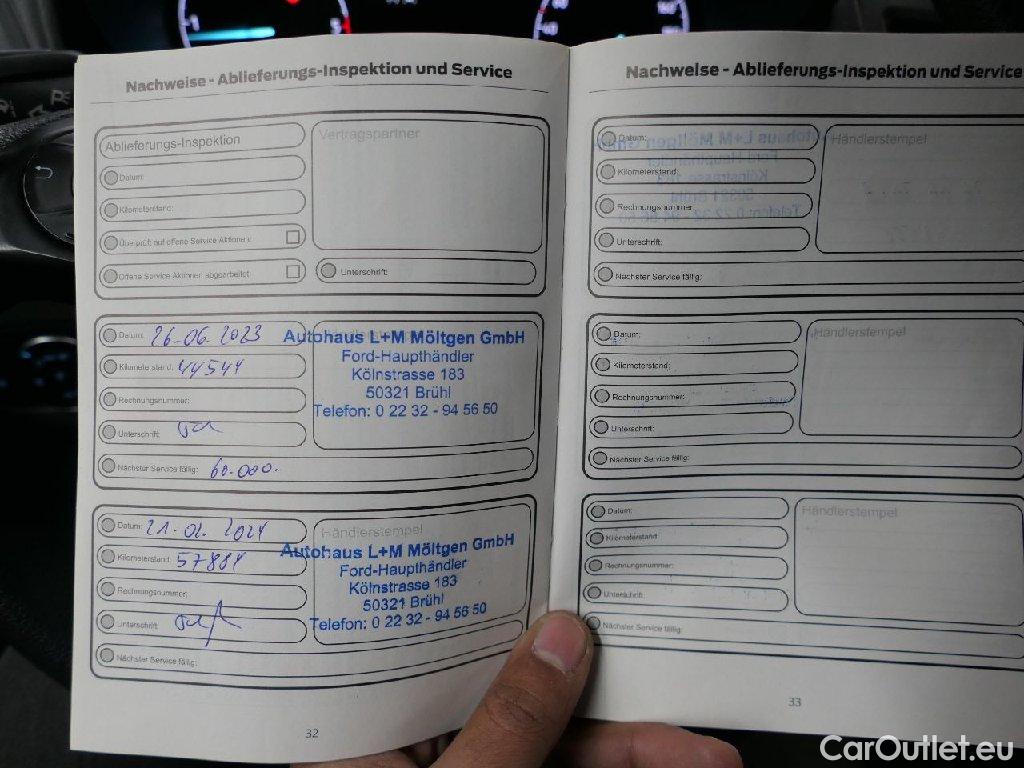 Nachweise - Ablieferungs-Inspektion und Service
Ablieferungs-Inspektion
Datum:
Kilometerstand:
Überprüft auf offene Service Aktionen:
Offene Service Aktionen abgearbeitet:
Vertragspartner
Unterschrift:
Datum: 26.06.2023
Kilometerstand: 44544
Rechnungsnummer:
Unterschrift:
Nächster Service fällig: 60.000.
Händlerstempel
Autohaus L+M Möltgen GmbH
Ford-Haupthändler
Kölnstrasse 183
50321 Brühl
Telefon: 0 22 32 - 94 56 50
Datum: 21.02.2024
Kilometerstand: 57884
Rechnungsnummer:
Unterschrift:
Nächster Service fällig:
Händlerstempel
Autohaus L+M Möltgen GmbH
Ford-Haupthändler
Kölnstrasse 183
50321 Brühl
Telefon: 0 22 32 - 94 56 50
32
Nachweise - Ablieferungs-Inspektion und Service
Datum:
Kilometerstand:
Rechnungsnummer:
Unterschrift:
Nächster Service fällig:
Händlerstempel
Datum:
Kilometerstand:
Rechnungsnummer:
Unterschrift:
Nächster Service fällig:
Händlerstempel
Datum:
Kilometerstand:
Rechnungsnummer:
Unterschrift:
Nächster Service fällig:
Händlerstempel
33
CarOutlet.eu